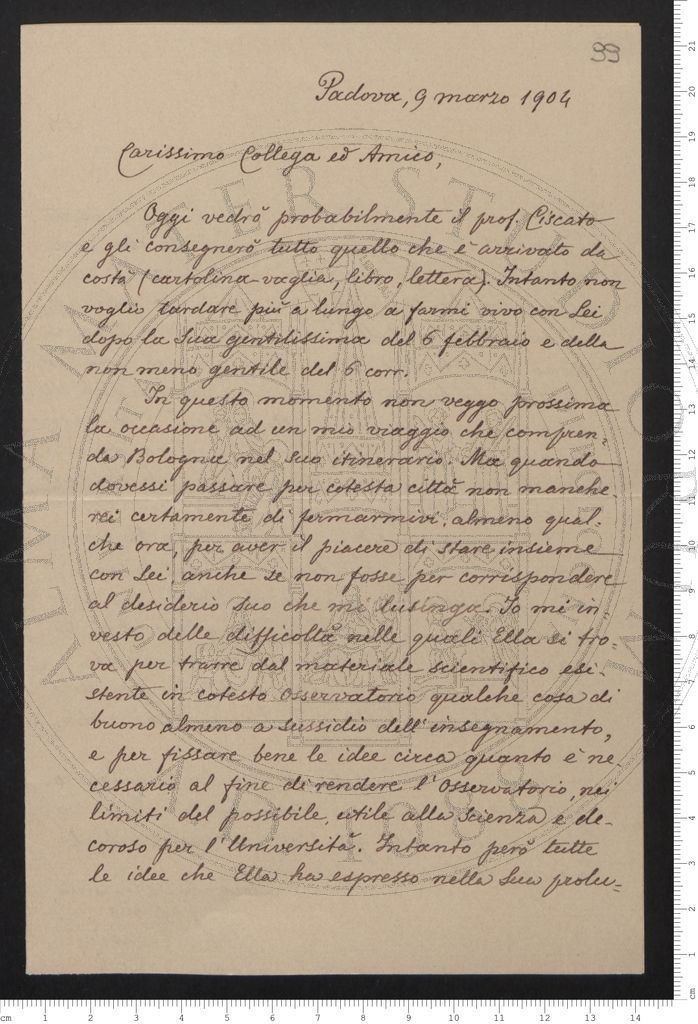 99
Padova, 9 marzo 1904
Carissimo Collega ed Amico,
Oggi vedrò probabilmente il prof. Ciscato
e gli consegnerò tutto quello che è arrivato da
costà (cartolina-vaglia, libro, lettera). Intanto non
voglio tardare più a lungo a farmi vivo con Lei
dopo la Sua gentilissima del 6 febbraio e della
non meno gentile del 6 corr.
In questo momento non veggo prossima
la occasione ad un mio viaggio che compren-
da Bologna nel suo itinerario. Ma quando
dovessi passare per cotesta città non manche-
rei certamente di fermarmivi, almeno qual-
che ora, per aver il piacere di stare insieme
con Lei anche se non fosse per corrispondere
al desiderio Suo che mi lusinga. Io mi in-
vesto delle difficoltà nelle quali Ella si tro-
va per trarre dal materiale scientifico esi-
stente in cotesto Osservatorio qualche cosa di
buono almeno a sussidio dell'insegnamento,
e per fissare bene le idee circa quanto è ne-
cessario al fine di rendere l'Osservatorio, nei
limiti del possibile, utile alla scienza e de-
coroso per l'Università. Intanto però tutte
le idee che Ella ha espresso nella Sua prolu-